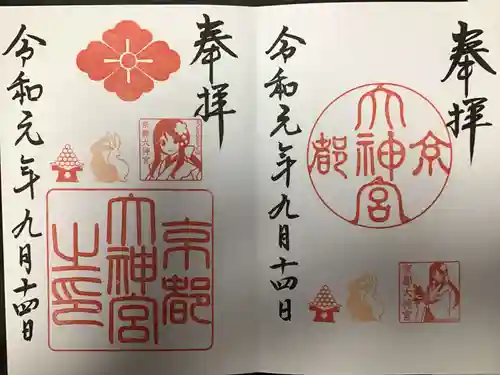 奉拝
京都
大神宮
令和元年九月十四日
奉拝
京都大神宮
京都
大神宮
之印
令和元年九月十四日